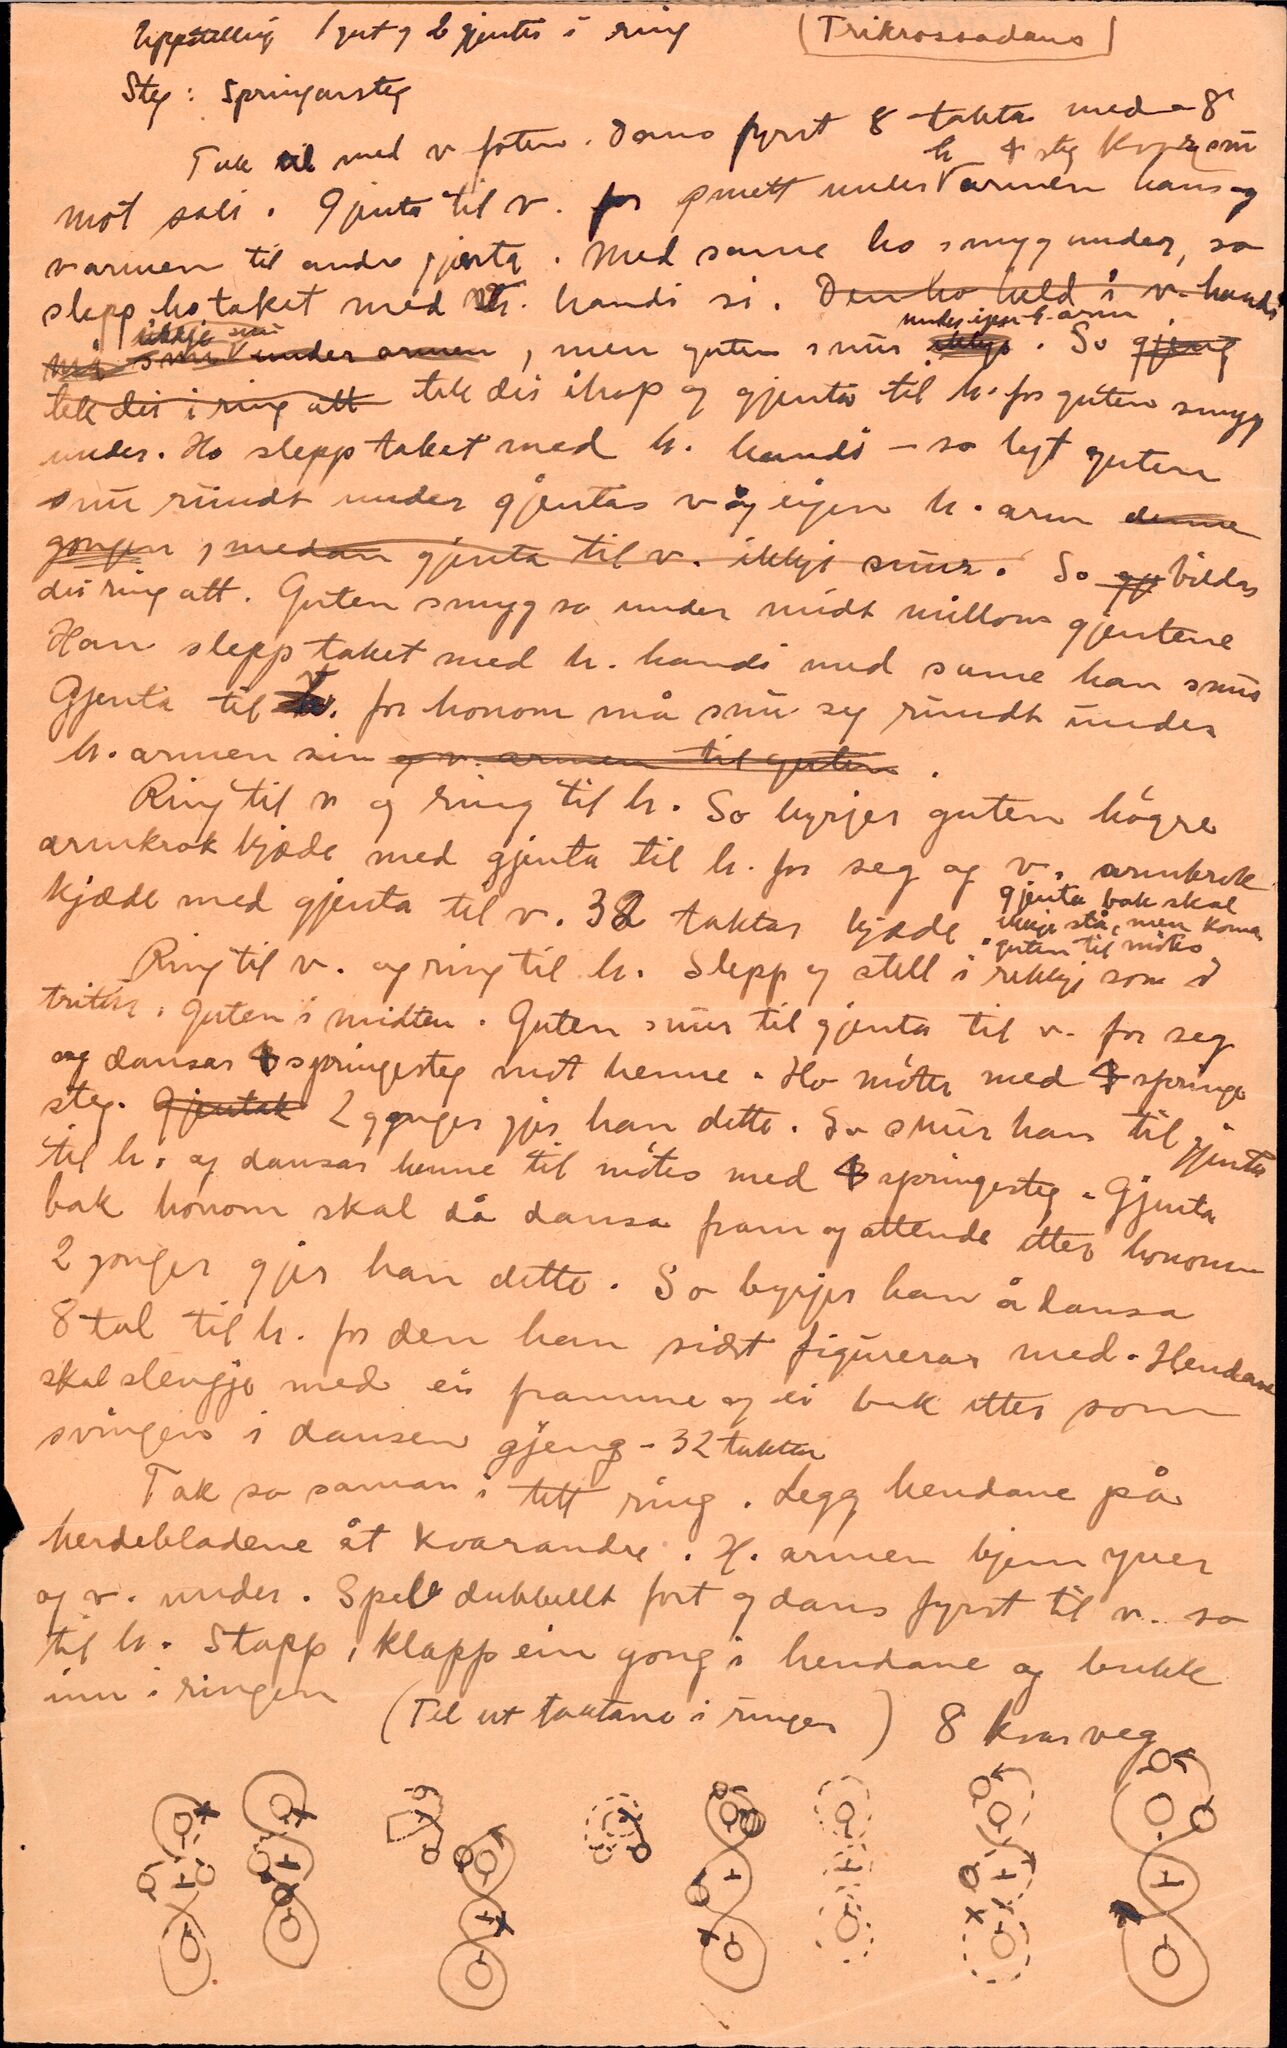 Uppstelling 1 gut og 2 gjenter i ring (Trikrossadans)
Steg: Springarsteg
Tak til med v foten. Dans fyrst 8 takta med - 8
mot soli. Gjenta til v. for smett under armen hans og
h 4 steg Kvar snu
v armen til andre gjenta. Med same ho smyg under, so
slepp ho taket med h. handi si. Den ho held i v. handi
må ikkje snu under armen, men guten snur ikkje. So gjeng
under eigen h. arm
tek dei i ring att tek dei ihop og gjenta til h. for guten smyg
under. Ho slepp taket med h. handi - so lyt guten
snu rundt under gjentas v og eigen h. arm denne
gongen, medan gjenta til v. ikkje snur. So bildar
dei ring att. Guten smyg so under midt millom gjentene
Han slepp taket med h. handi med same han snur
Gjenta til v. for honom må snu seg rundt under
h. armen sin og v. armen til guten.
Ring til v og ring til h. So byrjer guten högre
armkrok kjæde med gjenta til h. for seg og v. armkrok
kjæde med gjenta til v. 32 taktar kjæde
gjenta bak skal
ikkje stå, men koma
guten til møtes
Ring til v. og ring til h. Slepp og still i rekkje som i
tritur. Guten i midten. Guten snur til gjenta til v. for seg
og dansar 4 springesteg mot henne. Ho møter med 4 springe
steg. Gjentek 2 gonger gjer han dette. So snur han til gjenta
til h. og dansar henne til møtes med 4 springesteg. Gjenta
bak honom skal då dansa fram og attende etter honom
2 gonger gjer han dette. So byrjer han å dansa
8 tal til h. for den han sidst figurerar med. Hendane
skal slengje med ei framme og ei bak etter som
svingen i dansen gjeng - 32 taktar
Tak so saman i tett ring. Legg hendane på
herdebladene åt kvarandre. H. armen kjem yver
og v. under. Spel dubbellt fort og dans fyrst til v. so
til h. Stopp, klapp ein gong i hendane og bukk
inn i ringen (Tel ut taktane i ringen) 8 kvar veg